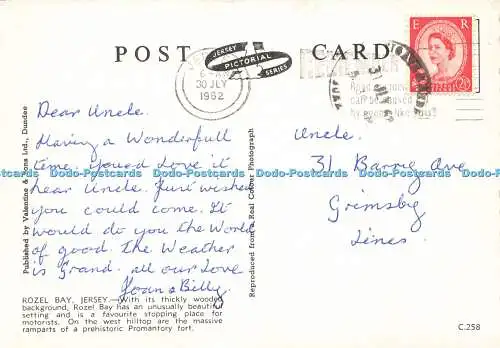 POST CARD
JERSEY
PICTORIAL
SERIES
30 JLY
1962
E R
2½
Dear Uncle.
Having a Wonderfull
time. Youed Love it
hear Uncle. Just wished
you could come. It
would do you the World
of good the Weather
is Grand. all our Love
Joan & Billy
Uncle.
31 Barry Ave
Grimsby
Lines.
Published by Valentine & Sons Ltd., Dundee
Reproduced from a Real Colour Photograph
Dodo-Postcards Dodo-Postcards Dodo-Postcards Dodo-Postcards
ROZEL BAY, JERSEY.—With its thickly wooded
background, Rozel Bay has an unusually beautiful
setting and is a favourite stopping place for
motorists. On the west hilltop are the massive
ramparts of a prehistoric Promantory fort.
C.258